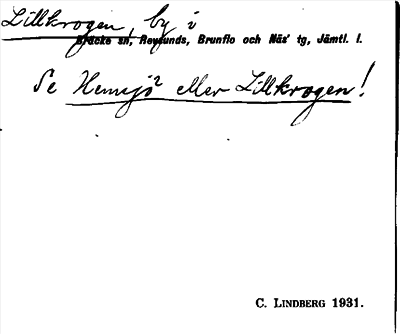 Lillkrogen, by i
Bräcke sn, Revsunds, Brunflo och Näs' tg, Jämtl. l.
Se Hemsjö² eller Lillkrogen!
C. LINDBERG 1931.